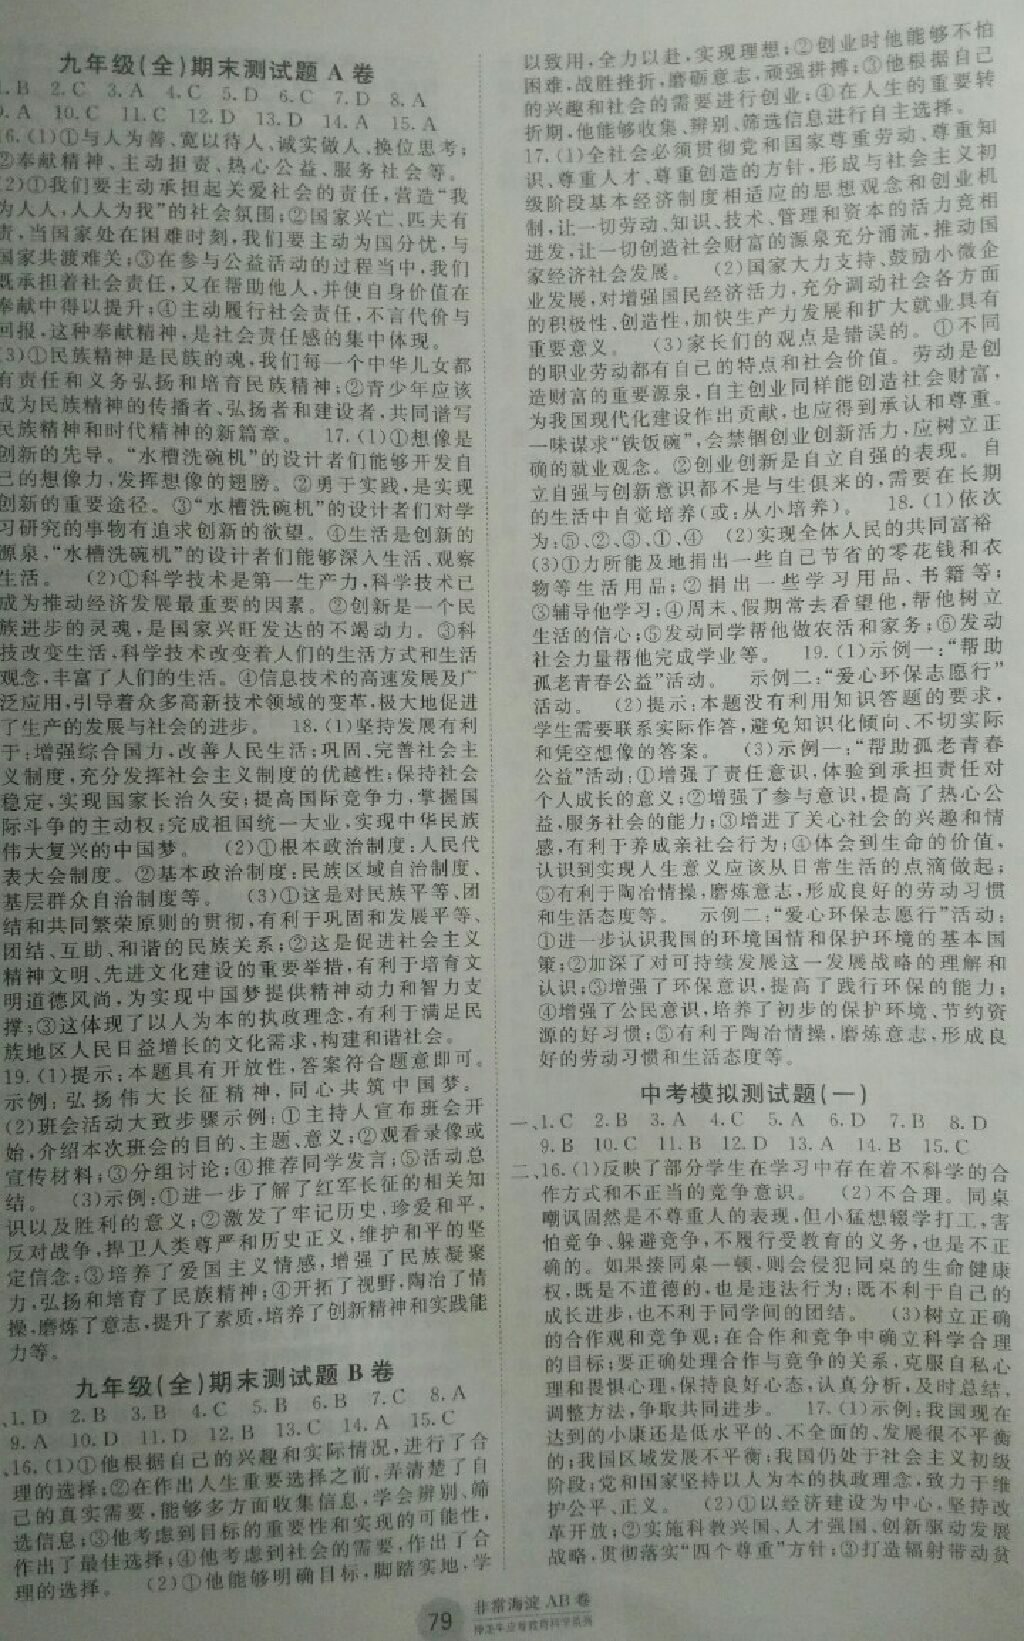 九年级(全)期末测试题 A 卷
.B 2.C 3.A 4.C 5.D 6.C 7.D 8.A
.A 10.C 11.C 12.D 13.D 14.A 15.A
16.(1)①与人为善、宽以待人、诚实做人、换位思考;
②奉献精神、主动担责、热心公益、服务社会等。
(2)①我们要主动承担起关爱社会的责任,营造“我
为人人,人人为我”的社会氛围;②国家兴亡、匹夫有
责,当国家处在困难时刻,我们要主动为国分忧,与
国家共渡难关;③在参与公益活动的过程当中,我们
既承担着社会责任,又在帮助他人,并使自身价值在
奉献中得以提升;④主动履行社会责任,不言代价与
回报,这种奉献精神,是社会责任感的集中体现。
(3)①民族精神是民族的魂,我们每一个中华儿女都
有责任和义务弘扬和培育民族精神;②青少年应该
成为民族精神的传播者、弘扬者和建设者,共同谱写
民族精神和时代精神的新篇章。 17.(1)①想像是
创新的先导。“水槽洗碗机”的设计者们能够开发自
己的想像力,发挥想像的翅膀。②勇于实践,是实现
创新的重要途径。③“水槽洗碗机”的设计者们对学
习研究的事物有追求创新的欲望。④生活是创新的
源泉,“水槽洗碗机”的设计者们能够深入生活、观察
生活。 (2)①科学技术是第一生产力,科学技术已
成为推动经济发展最重要的因素。②创新是一个民
族进步的灵魂,是国家兴旺发达的不竭动力。③科
技改变生活,科学技术改变着人们的生活方式和生活
观念,丰富了人们的生活。④信息技术的高速发展及广
泛应用,引导着众多高新技术领域的变革,极大地促进
了生产的发展与社会的进步。 18.(1)坚持发展有利
于:增强综合国力,改善人民生活;巩固、完善社会主
义制度,充分发挥社会主义制度的优越性;保持社会
稳定,实现国家长治久安;提高国际竞争力,掌握国
际斗争的主动权;完成祖国统一大业,实现中华民族
伟大复兴的中国梦。 (2)①根本政治制度:人民代
表大会制度。②基本政治制度:民族区域自治制度、
基层群众自治制度等。 (3)①这是对民族平等、团
结和共同繁荣原则的贯彻,有利于巩固和发展平等、
团结、互助、和谐的民族关系;②这是促进社会主义
精神文明、先进文化建设的重要举措,有利于培育文
明道德风尚,为实现中国梦提供精神动力和智力支
撑;③这体现了以人为本的执政理念,有利于满足民
族地区人民日益增长的文化需求,构建和谐社会。
19.(1)提示:本题具有开放性,答案符合题意即可。
示例:弘扬伟大长征精神,同心共筑中国梦。
(2)班会活动大致步骤示例:①主持人宣布班会开
始,介绍本次班会的目的、主题、意义;②观看录像或
宣传材料;③分组讨论;④推荐同学发言;⑤活动总
结。 (3)示例:①进一步了解了红军长征的相关知
识以及胜利的意义;②激发了牢记历史,珍爱和平,
反对战争,捍卫人类尊严和历史正义,维护和平的坚
定信念;③培养了爱国主义情感,增强了民族凝聚
力,弘扬和培育了民族精神;④开拓了视野,陶冶了情
操,磨炼了意志,提升了素质,培养了创新精神和实践能
力等。
九年级(全)期末测试题 B 卷
、1.D 2.B 3.B 4.C 5.B 6.B 7.C 8.A
9.A 10.D 11.D 12.B 13.C 14.A 15.C
、16.(1)①他根据自己的兴趣和实际情况,进行了合
理的选择;②在作出人生重要选择之前,弄清楚了自
己的真实需要,能够多方面收集信息,学会辨别、筛
选信息;③他考虑到目标的重要性和实现的可能性,
作出了最佳选择;④他考虑到社会的需要,作出了合
理的选择。 (2)①他能够明确目标,脚踏实地,学
以致用,全力以赴,实现理想;②创业时他能够不怕
困难,战胜挫折,磨砺意志,顽强拼搏;③他根据自己
的兴趣和社会的需要进行创业;④在人生的重要转
折期,他能够收集、辨别、筛选信息进行自主选择。
17.(1)全社会必须贯彻党和国家尊重劳动、尊重知
识、尊重人才、尊重创造的方针,形成与社会主义初
级阶段基本经济制度相适应的思想观念和创业机
制,让一切劳动、知识、技术、管理和资本的活力竞相
迸发,让一切创造社会财富的源泉充分涌流,推动国
家经济社会发展。 (2)国家大力支持、鼓励小微企
业发展,对增强国民经济活力,充分调动社会各方面
的积极性、创造性,加快生产力发展和扩大就业具有
重要意义。 (3)家长们的观点是错误的。①不同
的职业劳动都有自己的特点和社会价值。劳动是创
造财富的重要源泉,自主创业同样能创造社会财富,
为我国现代化建设作出贡献,也应得到承认和尊重。
一味谋求“铁饭碗”,会禁锢创业创新活力,应树立正
确的就业观念。②创业创新是自立自强的表现。自
立自强与创新意识都不是与生俱来的,需要在长期
的生活中自觉培养(或:从小培养)。 18.(1)依次
为:⑤、②、③、①、④ (2)实现全体人民的共同富裕
(3)①力所能及地捐出一些自己节省的零花钱和衣
物等生活用品;②捐出一些学习用品、书籍等;
③辅导他学习;④周末、假期常去看望他,帮他树立
生活的信心;⑤发动同学帮他做农活和家务;⑥发动
社会力量帮他完成学业等。 19.(1)示例一:“帮助
孤老青春公益”活动。 示例二:“爱心环保志愿行”
活动。 (2)提示:本题没有利用知识答题的要求,
学生需要联系实际作答,避免知识化倾向、不切实际
和凭空想像的答案。 (3)示例一:“帮助孤老青春
公益”活动:①增强了责任意识,体验到承担责任对
个人成长的意义;②增强了参与意识,提高了热心公
益,服务社会的能力;③增进了关心社会的兴趣和情
感,有利于养成亲社会行为;④体会到生命的价值,
认识到实现人生意义应该从日常生活的点滴做起;
⑤有利于陶冶情操,磨炼意志,形成良好的劳动习惯
和生活态度等。 示例二:“爱心环保志愿行”活动:
①进一步认识我国的环境国情和保护环境的基本国
策;②加深了对可持续发展这一发展战略的理解和
认识;③增强了环保意识,提高了践行环保的能力;
④增强了公民意识,培养了初步的保护环境、节约资
源的好习惯;⑤有利于陶冶情操,磨炼意志,形成良
好的劳动习惯和生活态度等。
中考模拟测试题(一)
一、1.C 2.B 3.A 4.C 5.A 6.D 7.B 8.D
9.B 10.C 11.B 12.D 13.A 14.B 15.C
二、16.(1)反映了部分学生在学习中存在着不科学的合
作方式和不正当的竞争意识。 (2)不合理。同桌
嘲讽固然是不尊重人的表现,但小猛想辍学打工,害
怕竞争、躲避竞争,不履行受教育的义务,也是不正
确的。如果揍同桌一顿,则会侵犯同桌的生命健康
权,既是不道德的,也是违法行为;既不利于自己的
成长进步,也不利于同学间的团结。 (3)树立正确
的合作观和竞争观;在合作和竞争中确立科学合理
的目标;要正确处理合作与竞争的关系,克服自私心
理和畏惧心理,保持良好心态,认真分析,及时总结,
调整方法,争取共同进步。 17.(1)示例:我国现在
达到的小康还是低水平的、不全面的、发展很不平衡
的;我国区域发展不平衡;我国仍处于社会主义初级
阶段;党和国家坚持以人为本的执政理念,致力于维
护公平、正义。 (2)①以经济建设为中心,坚持改
革开放;②实施科教兴国、人才强国、创新驱动发展
战略,贯彻落实“四个尊重”方针;③打造辐射带动贫
79
非常海淀 AB 卷